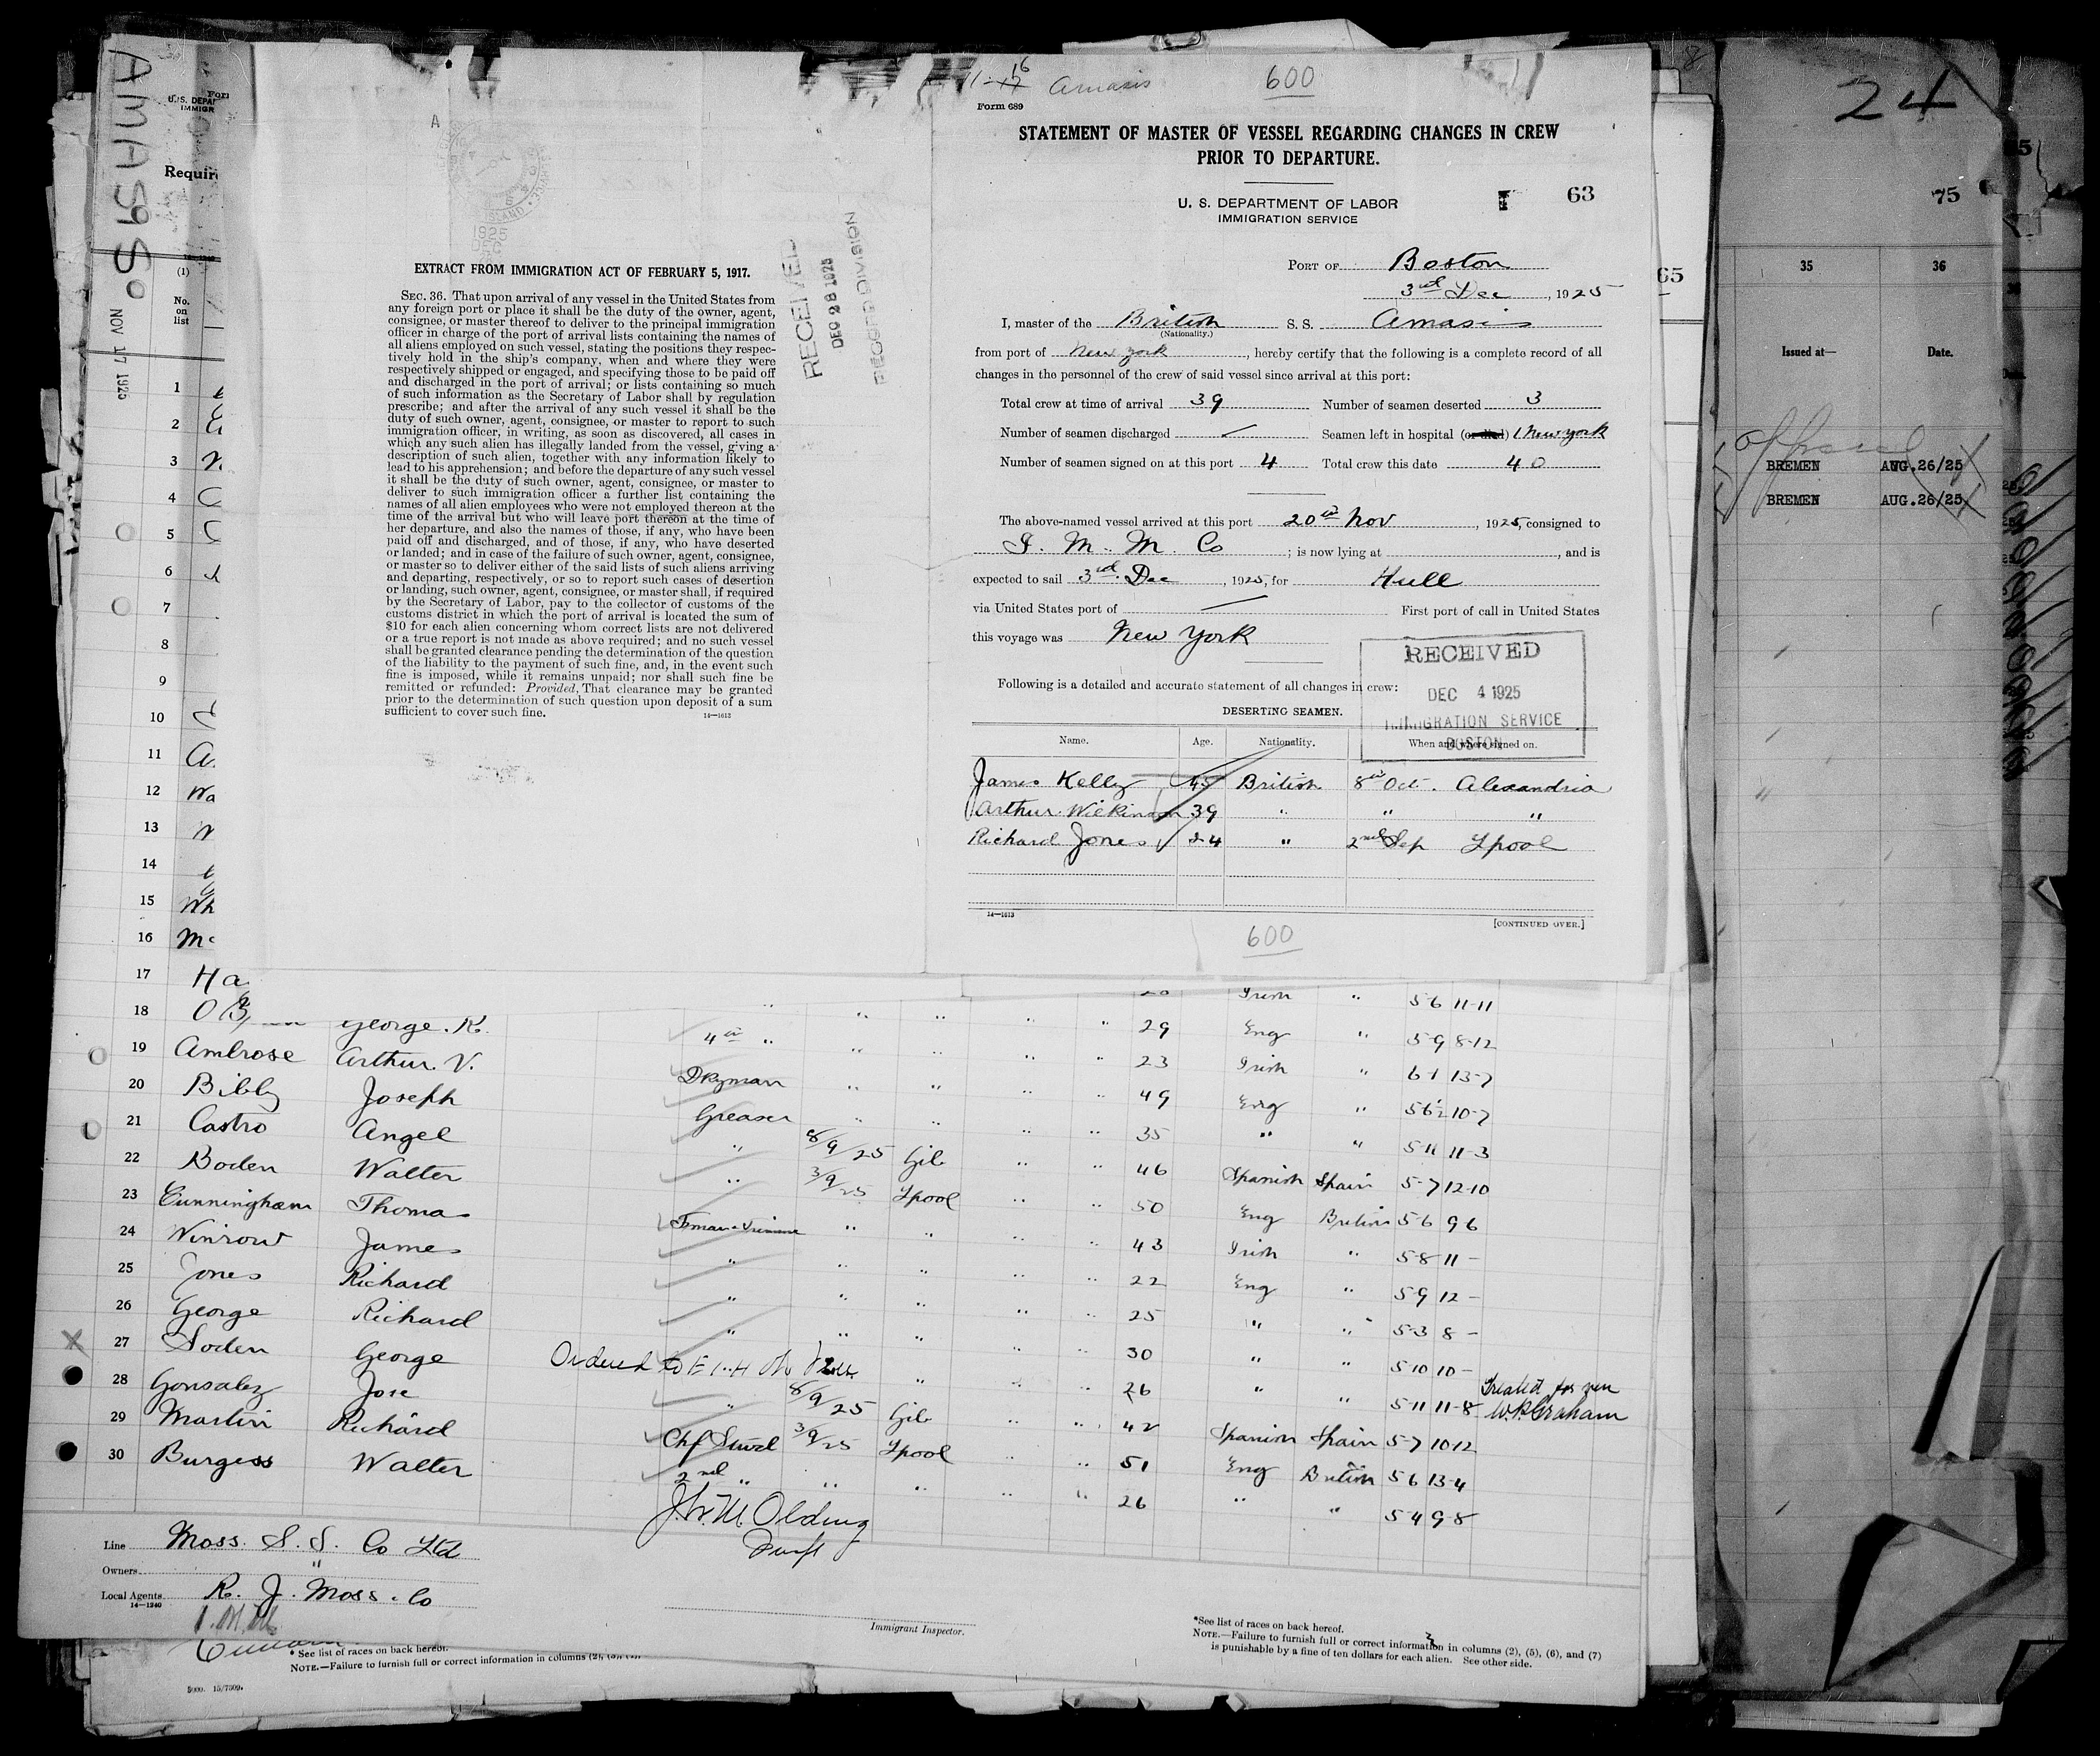 AMASIS
NOV 17 1925
U.S. DEPAR
IMMIGR
Requir
(1)
No.
on
list
EXTRACT FROM IMMIGRATION ACT OF FEBRUARY 5, 1917.
SEC. 36. That upon arrival of any vessel in the United States from
any foreign port or place it shall be the duty of the owner, agent,
consignee, or master thereof to deliver to the principal immigration
officer in charge of the port of arrival lists containing the names of
all aliens employed on such vessel, stating the positions they respec-
tively hold in the ship's company, when and where they were
respectively shipped or engaged, and specifying those to be paid off
and discharged in the port of arrival; or lists containing so much
of such information as the Secretary of Labor shall by regulation
prescribe; and after the arrival of any such vessel it shall be the
duty of such owner, agent, consignee, or master to report to such
immigration officer, in writing, as soon as discovered, all cases in
which any such alien has illegally landed from the vessel, giving a
description of such alien, together with any information likely to
lead to his apprehension; and before the departure of any such vessel
it shall be the duty of such owner, agent, consignee, or master to
deliver to such immigration officer a further list containing the
names of all alien employees who were not employed thereon at the
time of the arrival but who will leave port thereon at the time of
her departure, and also the names of those, if any, who have been
paid off and discharged, and of those, if any, who have deserted
or landed; and in case of the failure of such owner, agent, consignee,
or master so to deliver either of the said lists of such aliens arriving
and departing, respectively, or so to report such cases of desertion
or landing, such owner, agent, consignee, or master shall, if required
by the Secretary of Labor, pay to the collector of customs of the
customs district in which the port of arrival is located the sum of
$10 for each alien concerning whom correct lists are not delivered
or a true report is not made as above required; and no such vessel
shall be granted clearance pending the determination of the question
of the liability to the payment of such fine, and, in the event such
fine is imposed, while it remains unpaid; nor shall such fine be
remitted or refunded: Provided, That clearance may be granted
prior to the determination of such question upon deposit of a sum
sufficient to cover such fine.
14—1613
RECEIVED
DEC 28 1925
RECORD DIVISION
Amasis 600
Form 689
STATEMENT OF MASTER OF VESSEL REGARDING CHANGES IN CREW
PRIOR TO DEPARTURE.
63
U. S. DEPARTMENT OF LABOR
IMMIGRATION SERVICE
PORT OF Boston
3rd Dec, 1925
I, master of the British S. S. Amasis
(Nationality.)
from port of New York, hereby certify that the following is a complete record of all
changes in the personnel of the crew of said vessel since arrival at this port:
Total crew at time of arrival 39 Number of seamen deserted 3
Number of seamen discharged / Seamen left in hospital (or died) 1 New York
Number of seamen signed on at this port 4 Total crew this date 40
The above-named vessel arrived at this port 20th Nov, 1925, consigned to
I. M. M. Co; is now lying at , and is
expected to sail 3rd Dec, 1925, for Hull
via United States port of First port of call in United States
this voyage was New York
RECEIVED
DEC 4 1925
IMMIGRATION SERVICE
BOSTON
Following is a detailed and accurate statement of all changes in crew:
DESERTING SEAMEN.
Name. Age. Nationality. When and where signed on.
James Kelly 45 British 8th Oct. Alexandria
Arthur Wilkinson 39 " " "
Richard Jones 24 " 2nd Sep Lpool
14—1613
[CONTINUED OVER.]
600
24
75
65
35 36
Issued at— Date.
BREMEN AUG.26/25
BREMEN AUG.26/25
1
2
3
4
5
6
7
8
9
10
11
12
13
14
15
16
17 Ha
Irish " 5-6 11-11
18 George. R. 4th " " " " " 29 Eng " 5-9 8-12
19 Ambrose Arthur. V. Dkyman " " " " 23 Irish " 6-1 13-7
20 Bibby Joseph Greaser " " " " 49 Eng " 5-6½ 10-7
21 Castro Angel " 8/9/25 Gib " " 35 " " 5-11 11-3
22 Boden Walter " 3/9/25 Lpool " " 46 Spanish Spain 5-7 12-10
23 Cunningham Thomas " " " " 50 Eng British 5-6 9-6
24 Winrow James " " " " " 43 Irish " 5-8 11-
25 Jones Richard " " " " " 22 Eng " 5-9 12-
26 George Richard " " " " " 25 " " 5-3 8-
27 Soden George Ordered to " " " 30 " " 5-10 10-
28 Gonsalez Jose " 8/9/25 Gib " " 26 " " 5-11 11-8 Treated for ven
W.P. Graham
29 Martin Richard Chf Stwd 3/9/25 Lpool " " 42 Spanish Spain 5-7 10-12
30 Burgess Walter 2nd " " " " " 51 Eng British 5-6 13-4
26 " " 5-4 9-8
Line Moss. S. S. Co Ltd
Owners "
Local Agents R. J. Moss. Co
14—1240
Immigrant Inspector.
*See list of races on back hereof.
NOTE.—Failure to furnish full or correct information in columns (2), (5), (6), and (7)
is punishable by a fine of ten dollars for each alien. See other side.
* See list of races on back hereof.
NOTE.—Failure to furnish full or correct information in columns (2), (5),